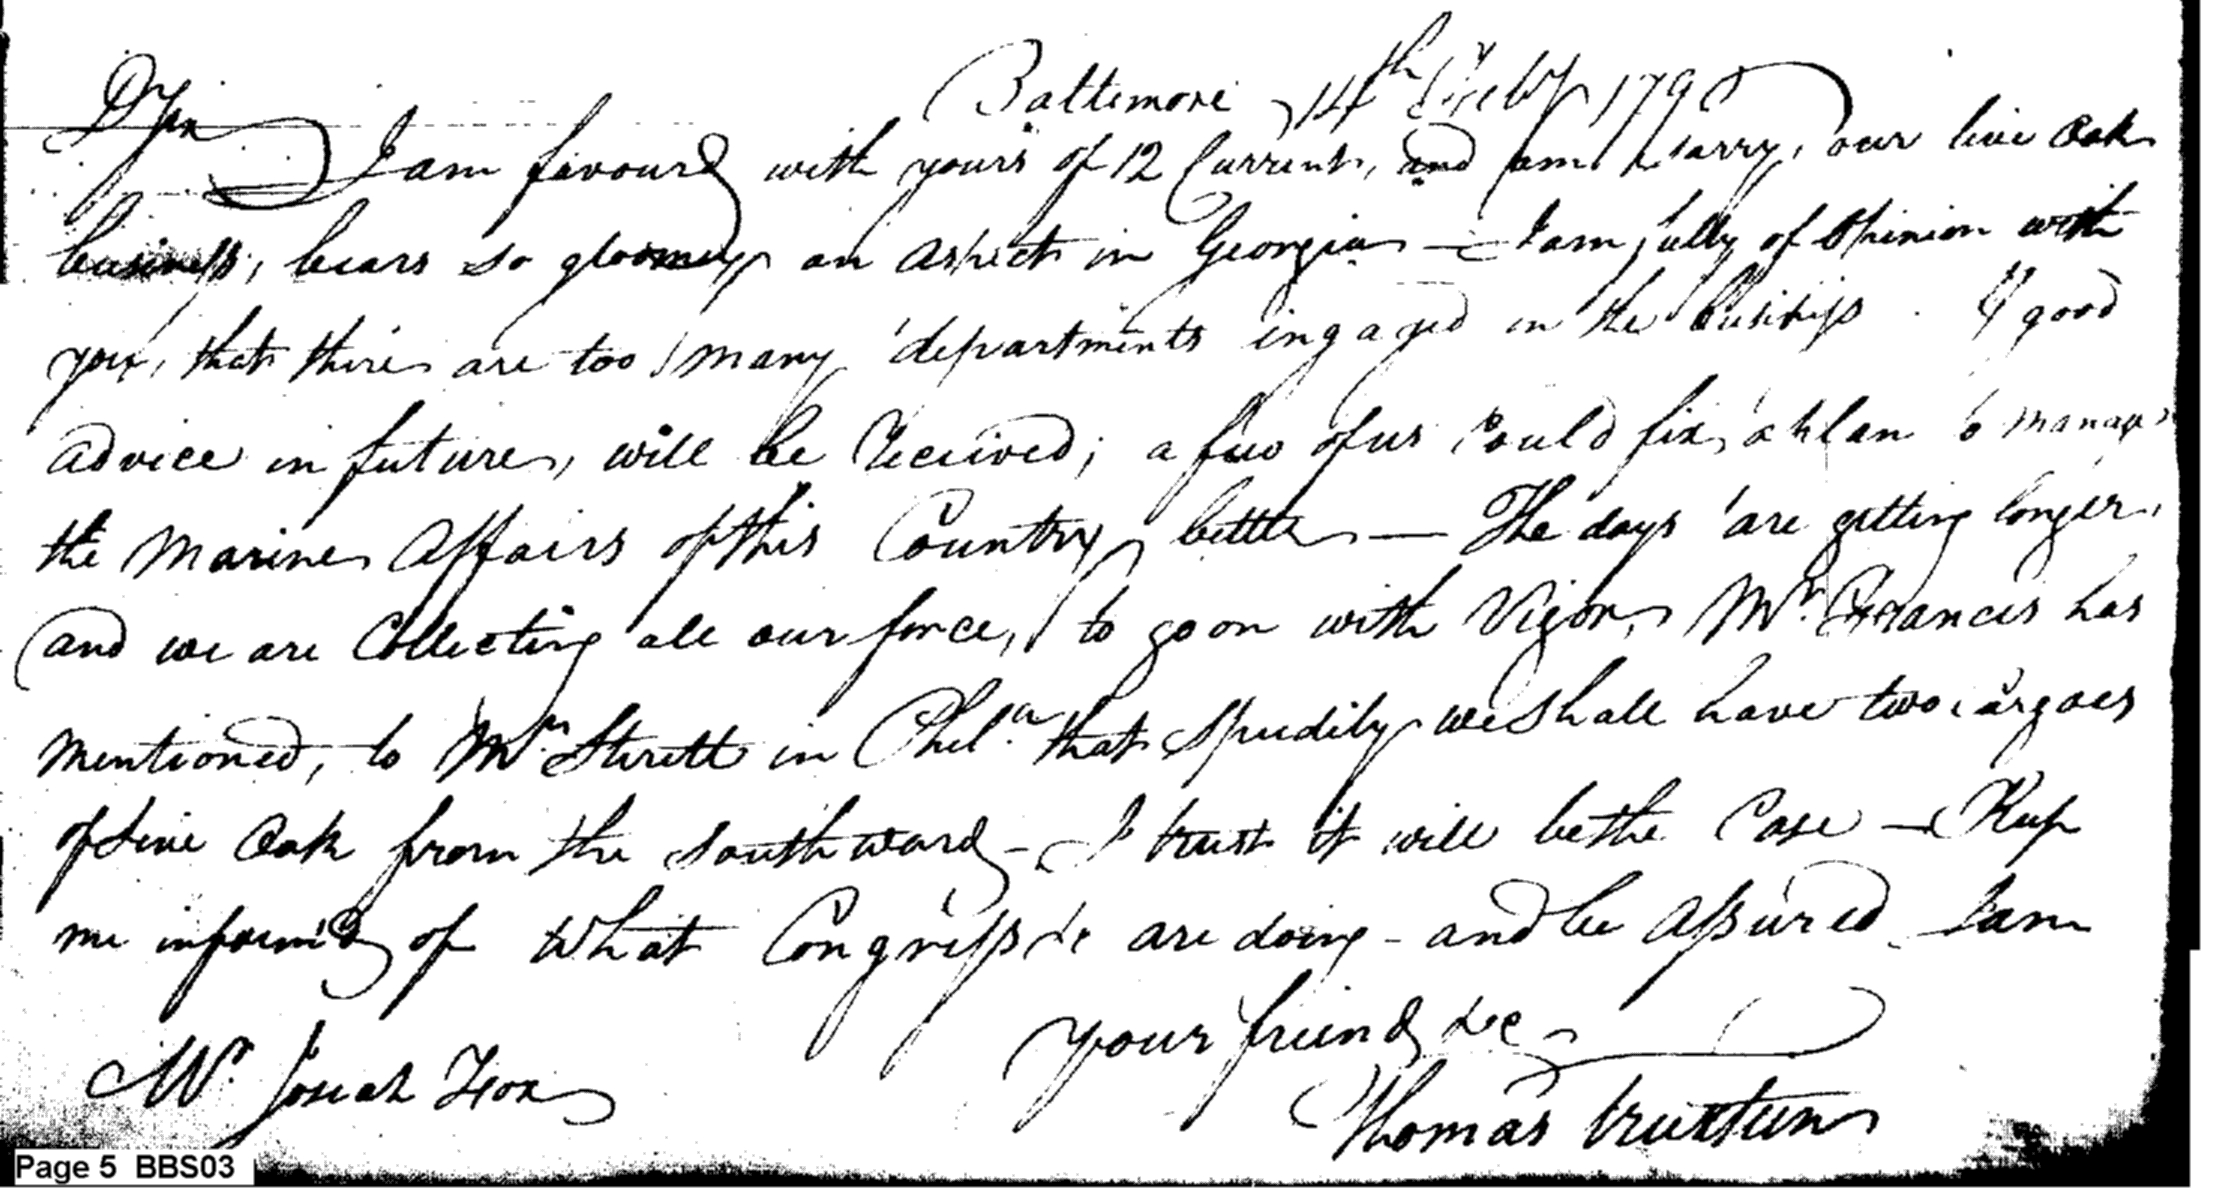 D Sir
Baltimore 14th Feby 1795
I am favoured with yours of 12 Current, and am sorry, our live Oak
business, bears so gloomey an aspect in Georgia — I am fully of Opinion with
you, that there are too many departments engaged in the business. If good
advice in future, will be Received; a few of us Could fix, a plan to manage
the Marine Affairs of this Country better — The days are getting longer,
and we are Collecting all our force, to go on with Vigor, Mr. Francis has
mentioned, to Mr. Sterett in Phila. that Speedily we Shall have two cargoes
of Live Oak from the Southward — I trust it will be the Case — Keep
me informed of What Congress &c are doing - and be Assured I am
Your friend &c
Mr. Josiah Fox
Thomas Truxtun
Page 5 BBS03